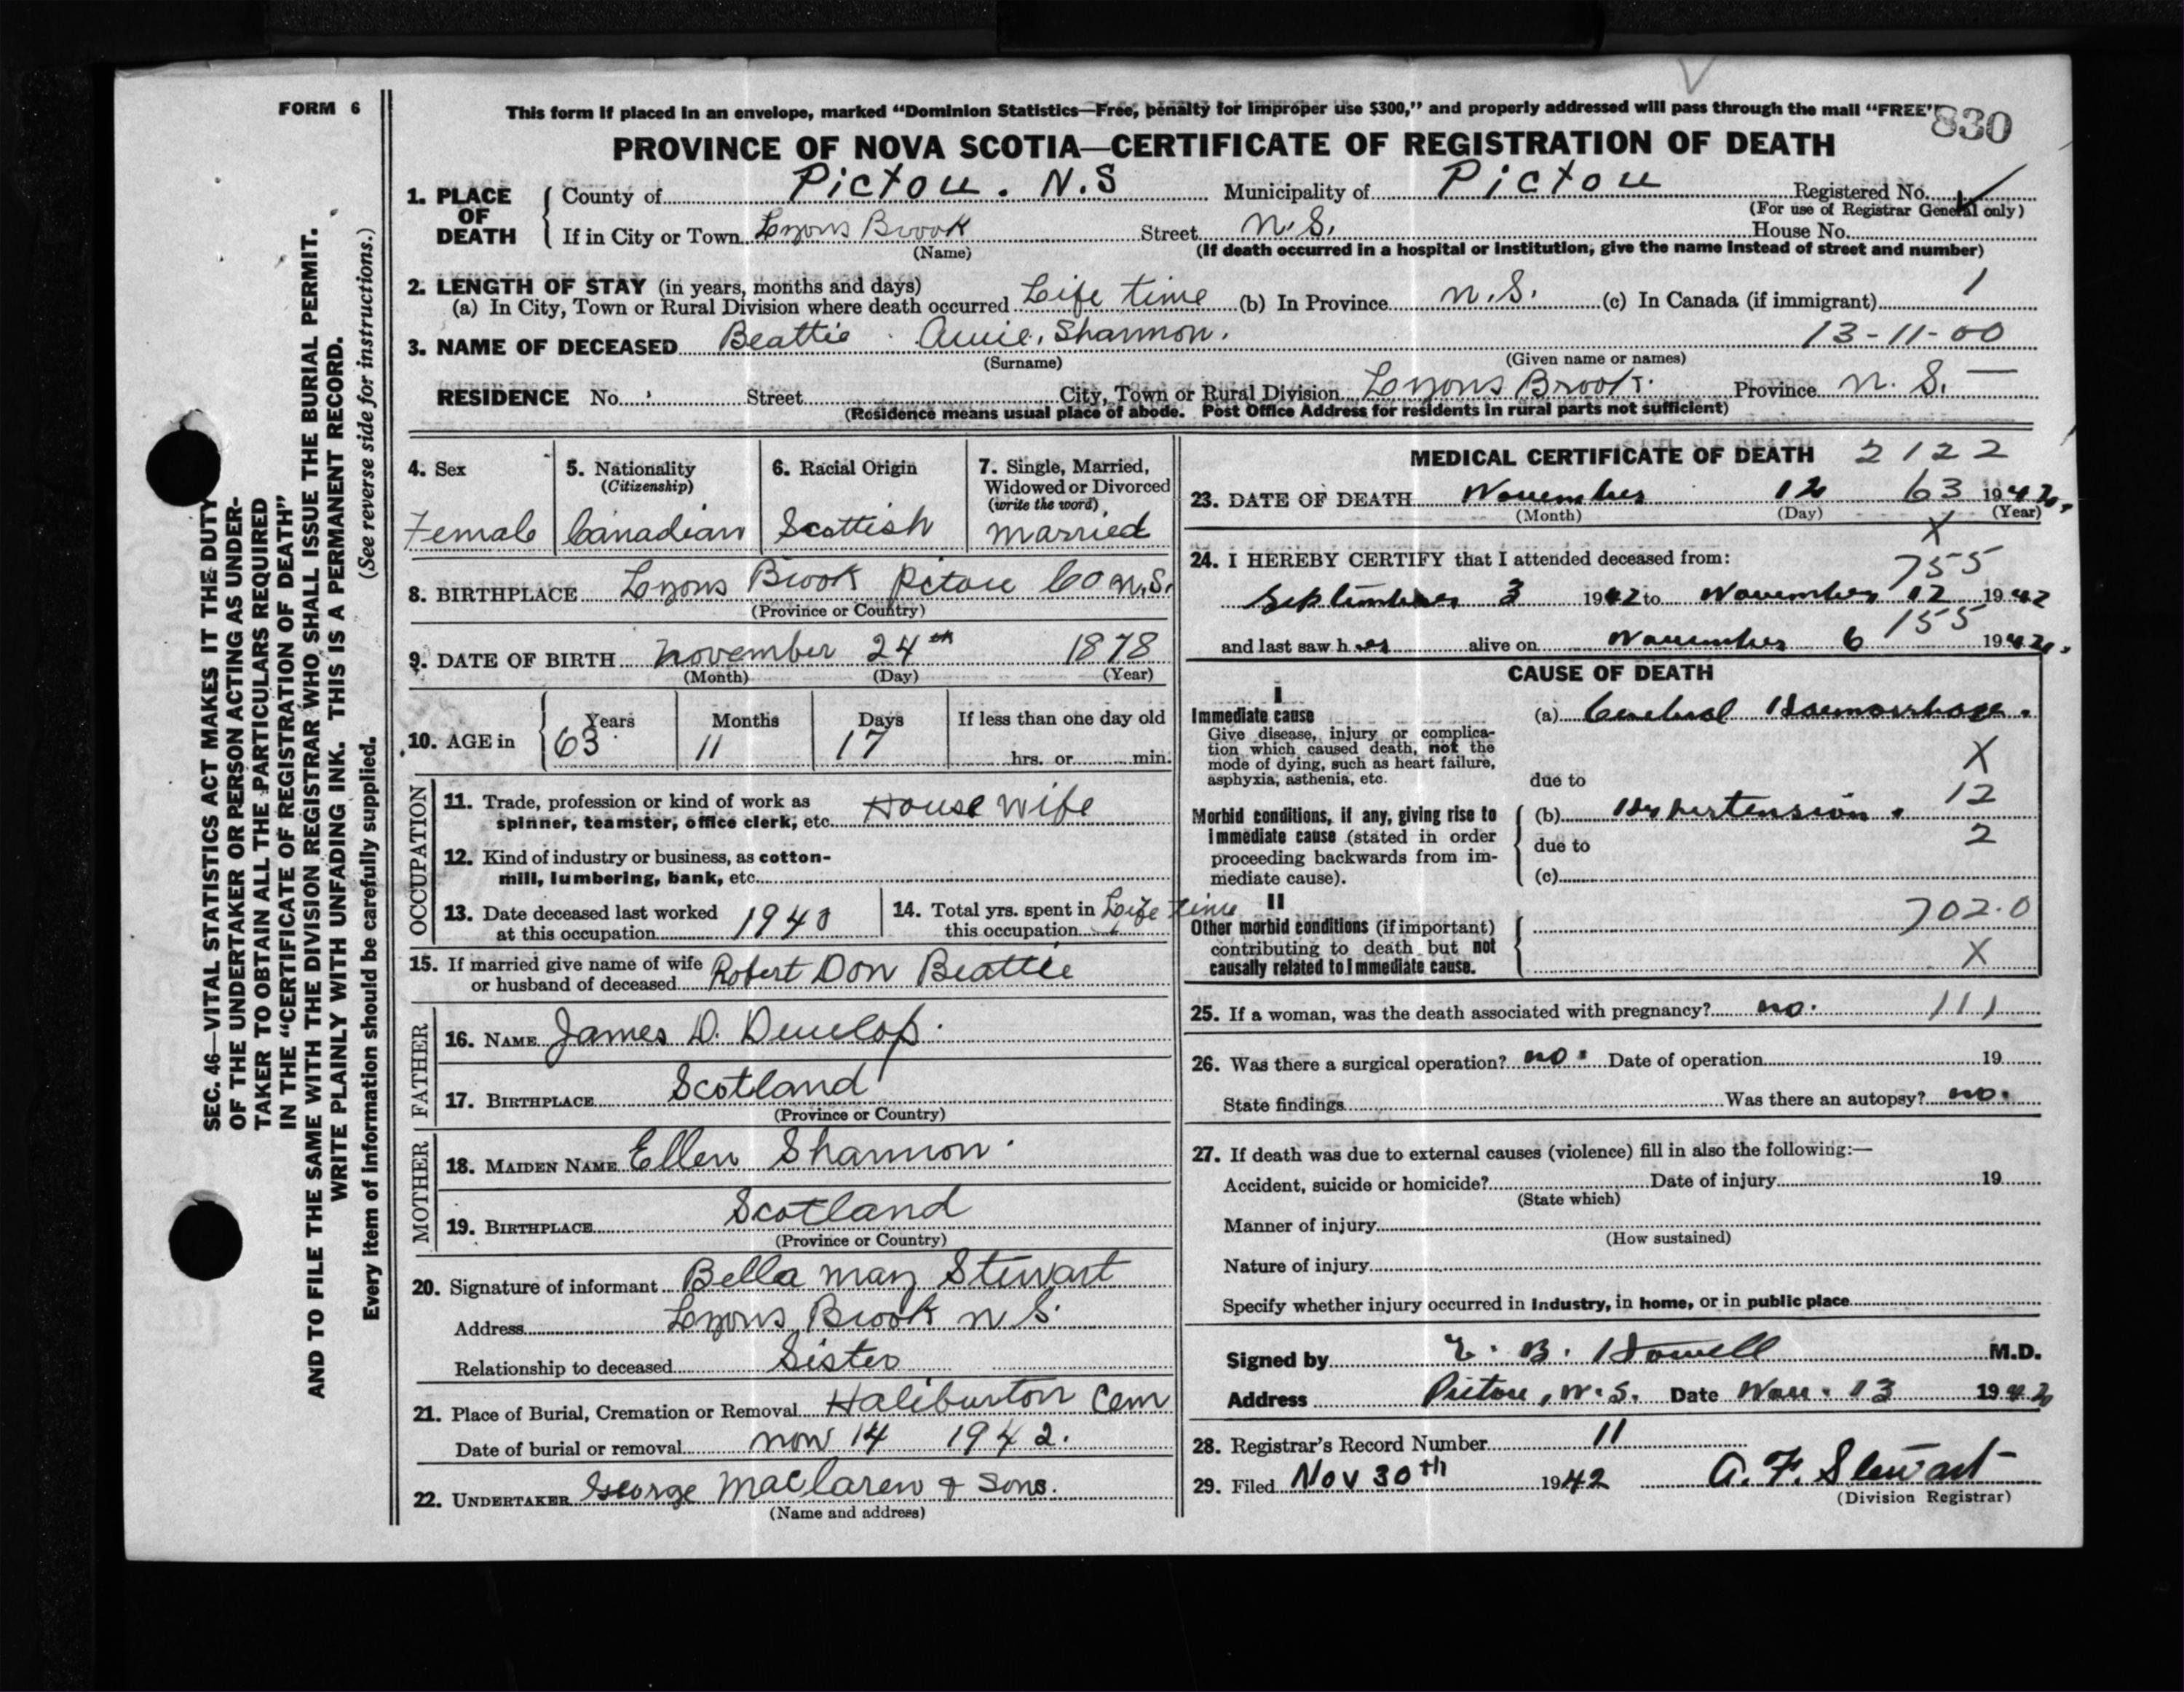 FORM 6
This form if placed in an envelope, marked "Dominion Statistics—Free, penalty for improper use $300," and properly addressed will pass through the mail "FREE"
830
PROVINCE OF NOVA SCOTIA—CERTIFICATE OF REGISTRATION OF DEATH
1. PLACE OF DEATH
County of Pictou. N.S Municipality of Pictou Registered No.
(For use of Registrar General only)
If in City or Town Lyons Brook Street N.S. House No.
(Name) (If death occurred in a hospital or institution, give the name instead of street and number)
2. LENGTH OF STAY (in years, months and days)
(a) In City, Town or Rural Division where death occurred Life time (b) In Province N.S. (c) In Canada (if immigrant) 1
3. NAME OF DECEASED Beattie Annie, Shannon. 13-11-00
(Surname) (Given name or names)
RESIDENCE No. Street City, Town or Rural Division Lyons Brook. Province N. S. —
(Residence means usual place of abode. Post Office Address for residents in rural parts not sufficient)
4. Sex
Female
5. Nationality
(Citizenship)
Canadian
6. Racial Origin
Scottish
7. Single, Married,
Widowed or Divorced
(write the word)
Married
8. BIRTHPLACE Lyons Brook Pictou Co N.S.
(Province or Country)
9. DATE OF BIRTH November 24th 1878
(Month) (Day) (Year)
10. AGE in
Years Months Days If less than one day old
63 11 17 hrs. or min.
OCCUPATION
11. Trade, profession or kind of work as
spinner, teamster, office clerk, etc. House Wife
12. Kind of industry or business, as cotton-
mill, lumbering, bank, etc.
13. Date deceased last worked
at this occupation 1940
14. Total yrs. spent in
this occupation Life time
15. If married give name of wife
or husband of deceased Robert Don Beattie
FATHER
16. NAME James D. Dunlop.
17. BIRTHPLACE Scotland
(Province or Country)
MOTHER
18. MAIDEN NAME Ellen Shannon.
19. BIRTHPLACE Scotland
(Province or Country)
20. Signature of informant Bella May Stewart
Address Lyons Brook N S.
Relationship to deceased Sister
21. Place of Burial, Cremation or Removal Haliburton Cem
Date of burial or removal Nov 14 1942.
22. UNDERTAKER George MacLaren & Sons.
(Name and address)
MEDICAL CERTIFICATE OF DEATH 2122
23. DATE OF DEATH November 12 63 1942.
(Month) (Day) (Year)
X
24. I HEREBY CERTIFY that I attended deceased from:
755
September 3 1942 to November 12 1942
155
and last saw h er alive on November 6 1942.
CAUSE OF DEATH
I
Immediate cause
Give disease, injury or complica-
tion which caused death, not the
mode of dying, such as heart failure,
asphyxia, asthenia, etc.
(a) Cerebral Haemorrhage.
X
due to
12
Morbid conditions, if any, giving rise to
immediate cause (stated in order
proceeding backwards from im-
mediate cause).
(b) Hypertension.
2
due to
(c)
II
Other morbid conditions (if important)
contributing to death but not
causally related to immediate cause.
702.0
X
25. If a woman, was the death associated with pregnancy? no. 111
26. Was there a surgical operation? no. Date of operation 19
State findings Was there an autopsy? no.
27. If death was due to external causes (violence) fill in also the following:—
Accident, suicide or homicide? Date of injury 19
(State which)
Manner of injury
(How sustained)
Nature of injury
Specify whether injury occurred in industry, in home, or in public place
Signed by E. B. Howell M.D.
Address Pictou, N.S. Date Nov. 13 1942
28. Registrar's Record Number 11
29. Filed Nov 30th 1942 A. F. Stewart
(Division Registrar)
SEC. 46—VITAL STATISTICS ACT MAKES IT THE DUTY
OF THE UNDERTAKER OR PERSON ACTING AS UNDER-
TAKER TO OBTAIN ALL THE PARTICULARS REQUIRED
IN THE "CERTIFICATE OF REGISTRATION OF DEATH"
AND TO FILE THE SAME WITH THE DIVISION REGISTRAR WHO SHALL ISSUE THE BURIAL PERMIT.
WRITE PLAINLY WITH UNFADING INK. THIS IS A PERMANENT RECORD.
Every item of information should be carefully supplied. (See reverse side for instructions.)